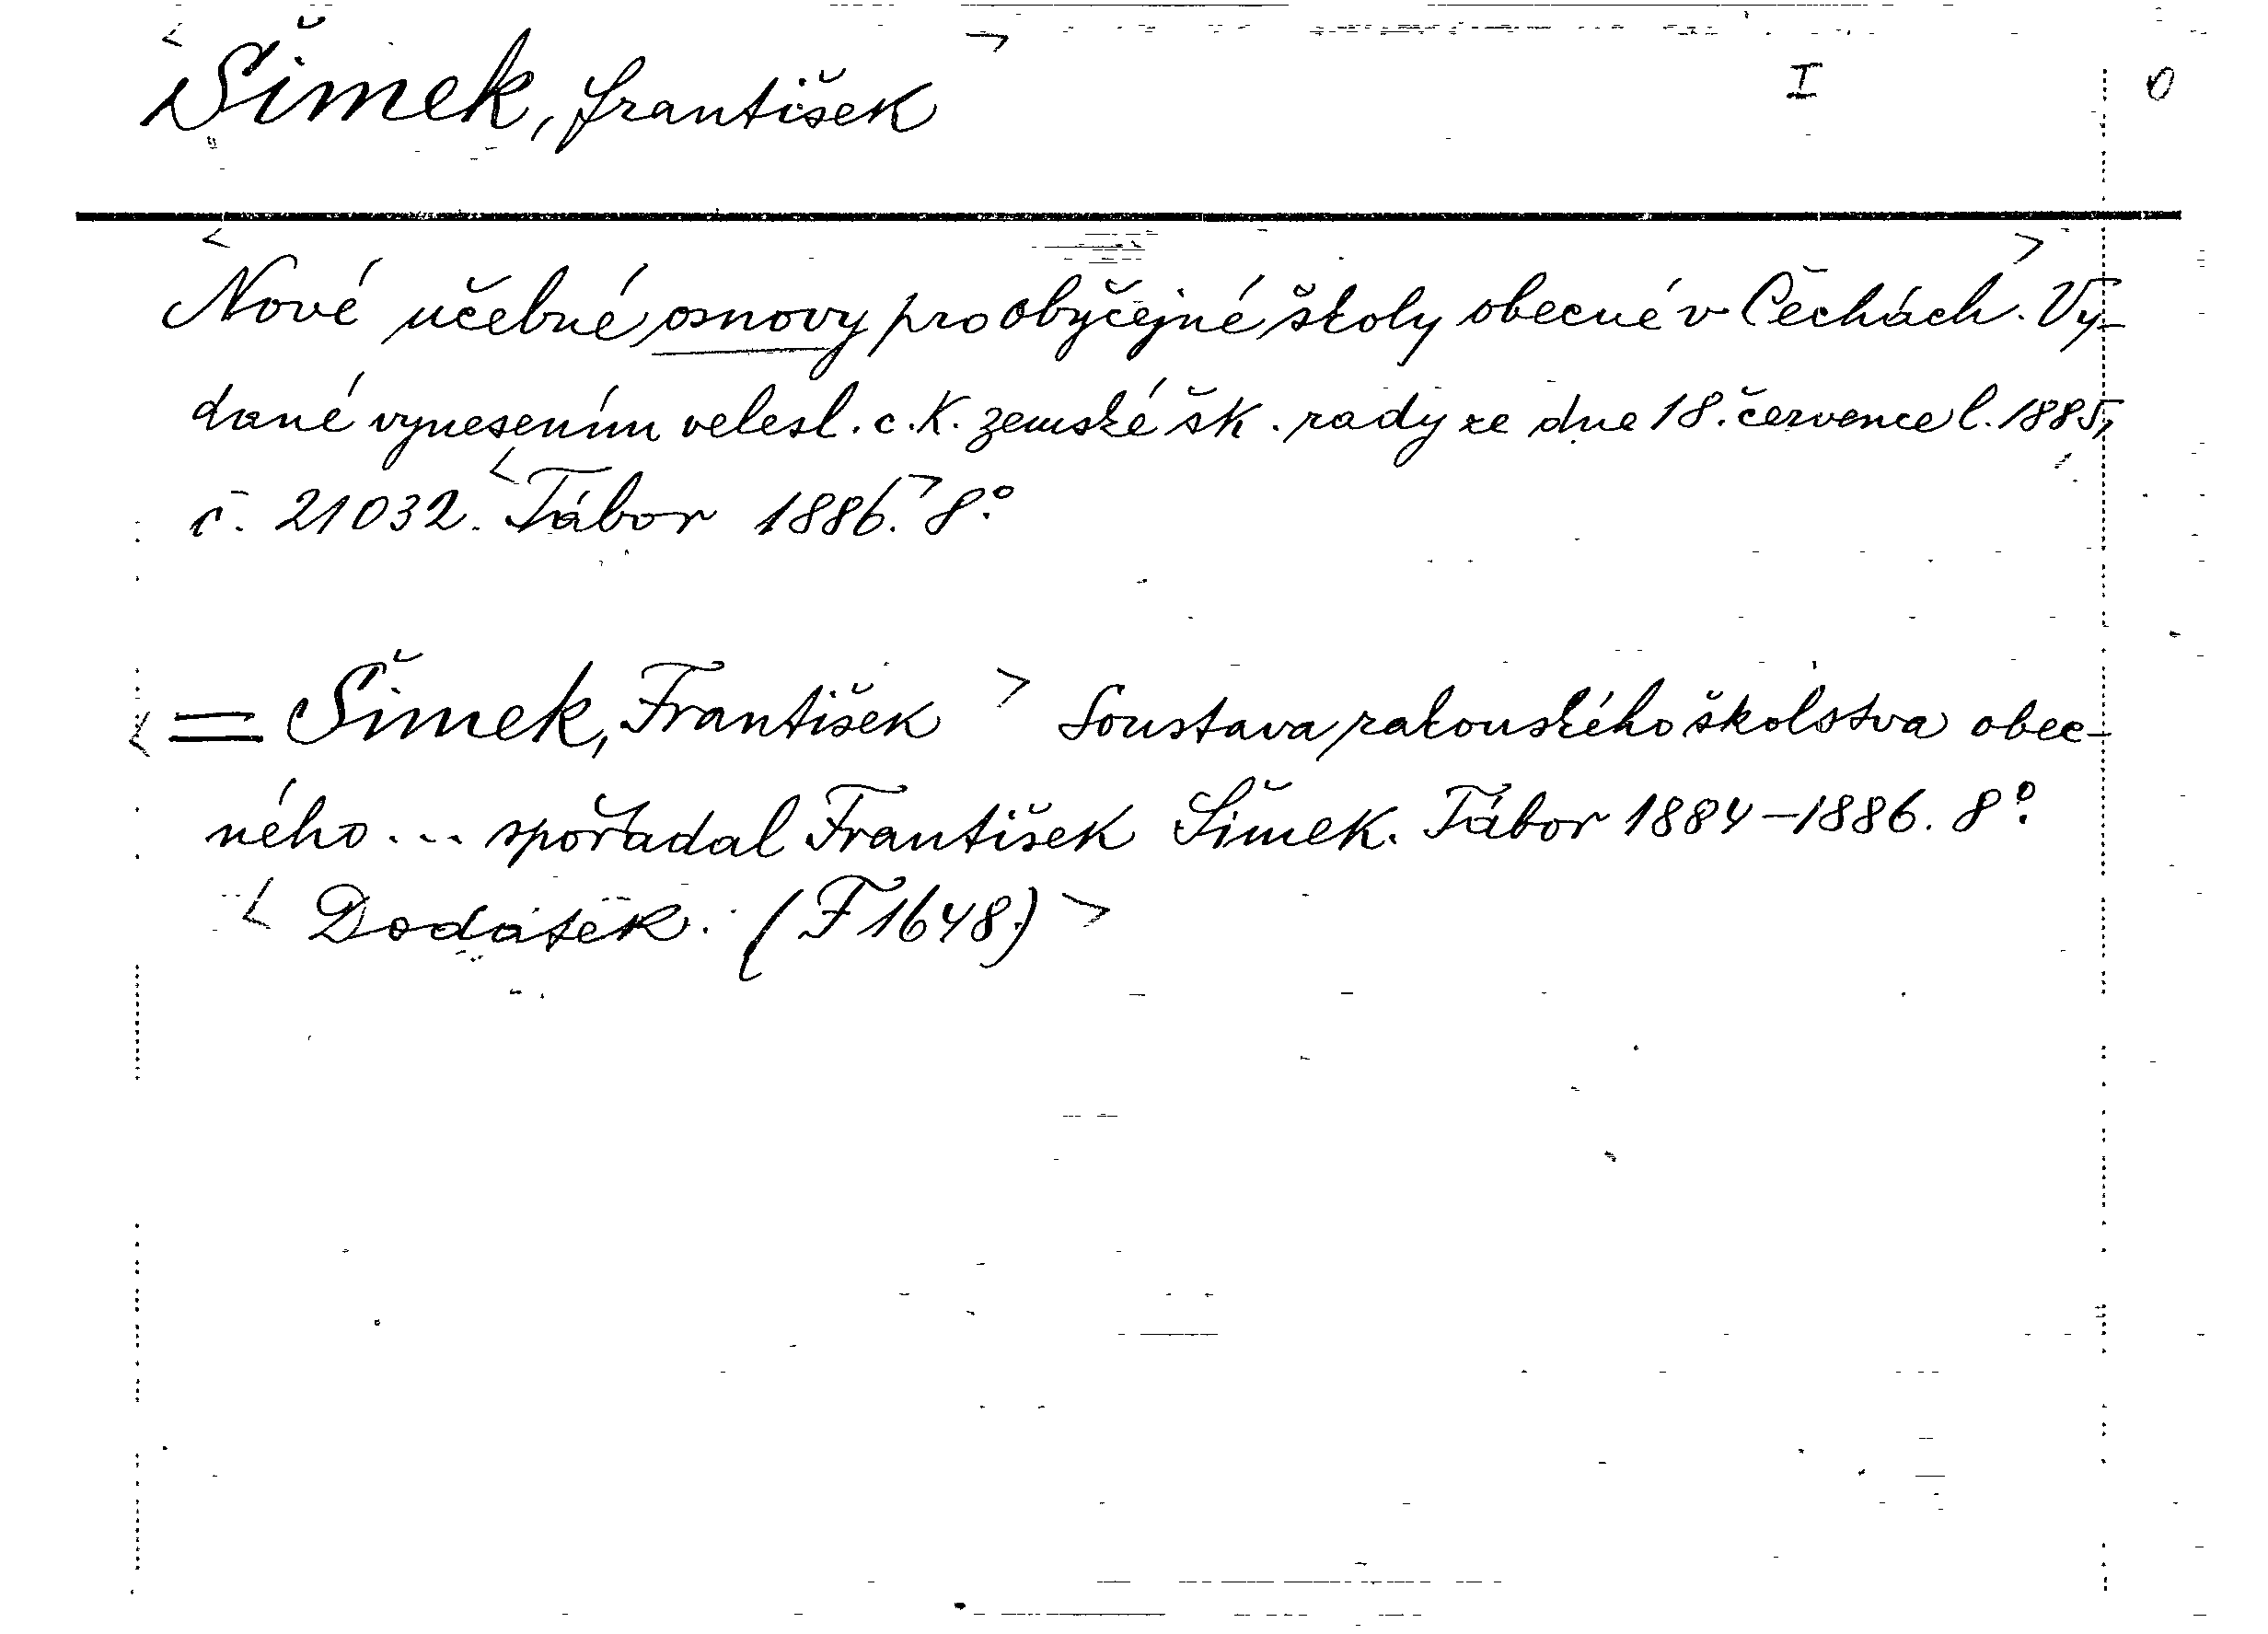 <Šimek, František> I O
<Nové učebné osnovy pro obyčejné školy obecné v Čechách.> Vy-
dané vynesením velesl. c. k. zemské šk. rady ze dne 18. července l. 1885,
č. 21032. <Tábor 1886.> 8°.
<= Šimek, František> Soustava rakouského školstva obec-
ného... spořadal František Šimek. Tábor 1884-1886. 8°.
<Dodatek. (F 1648.)>